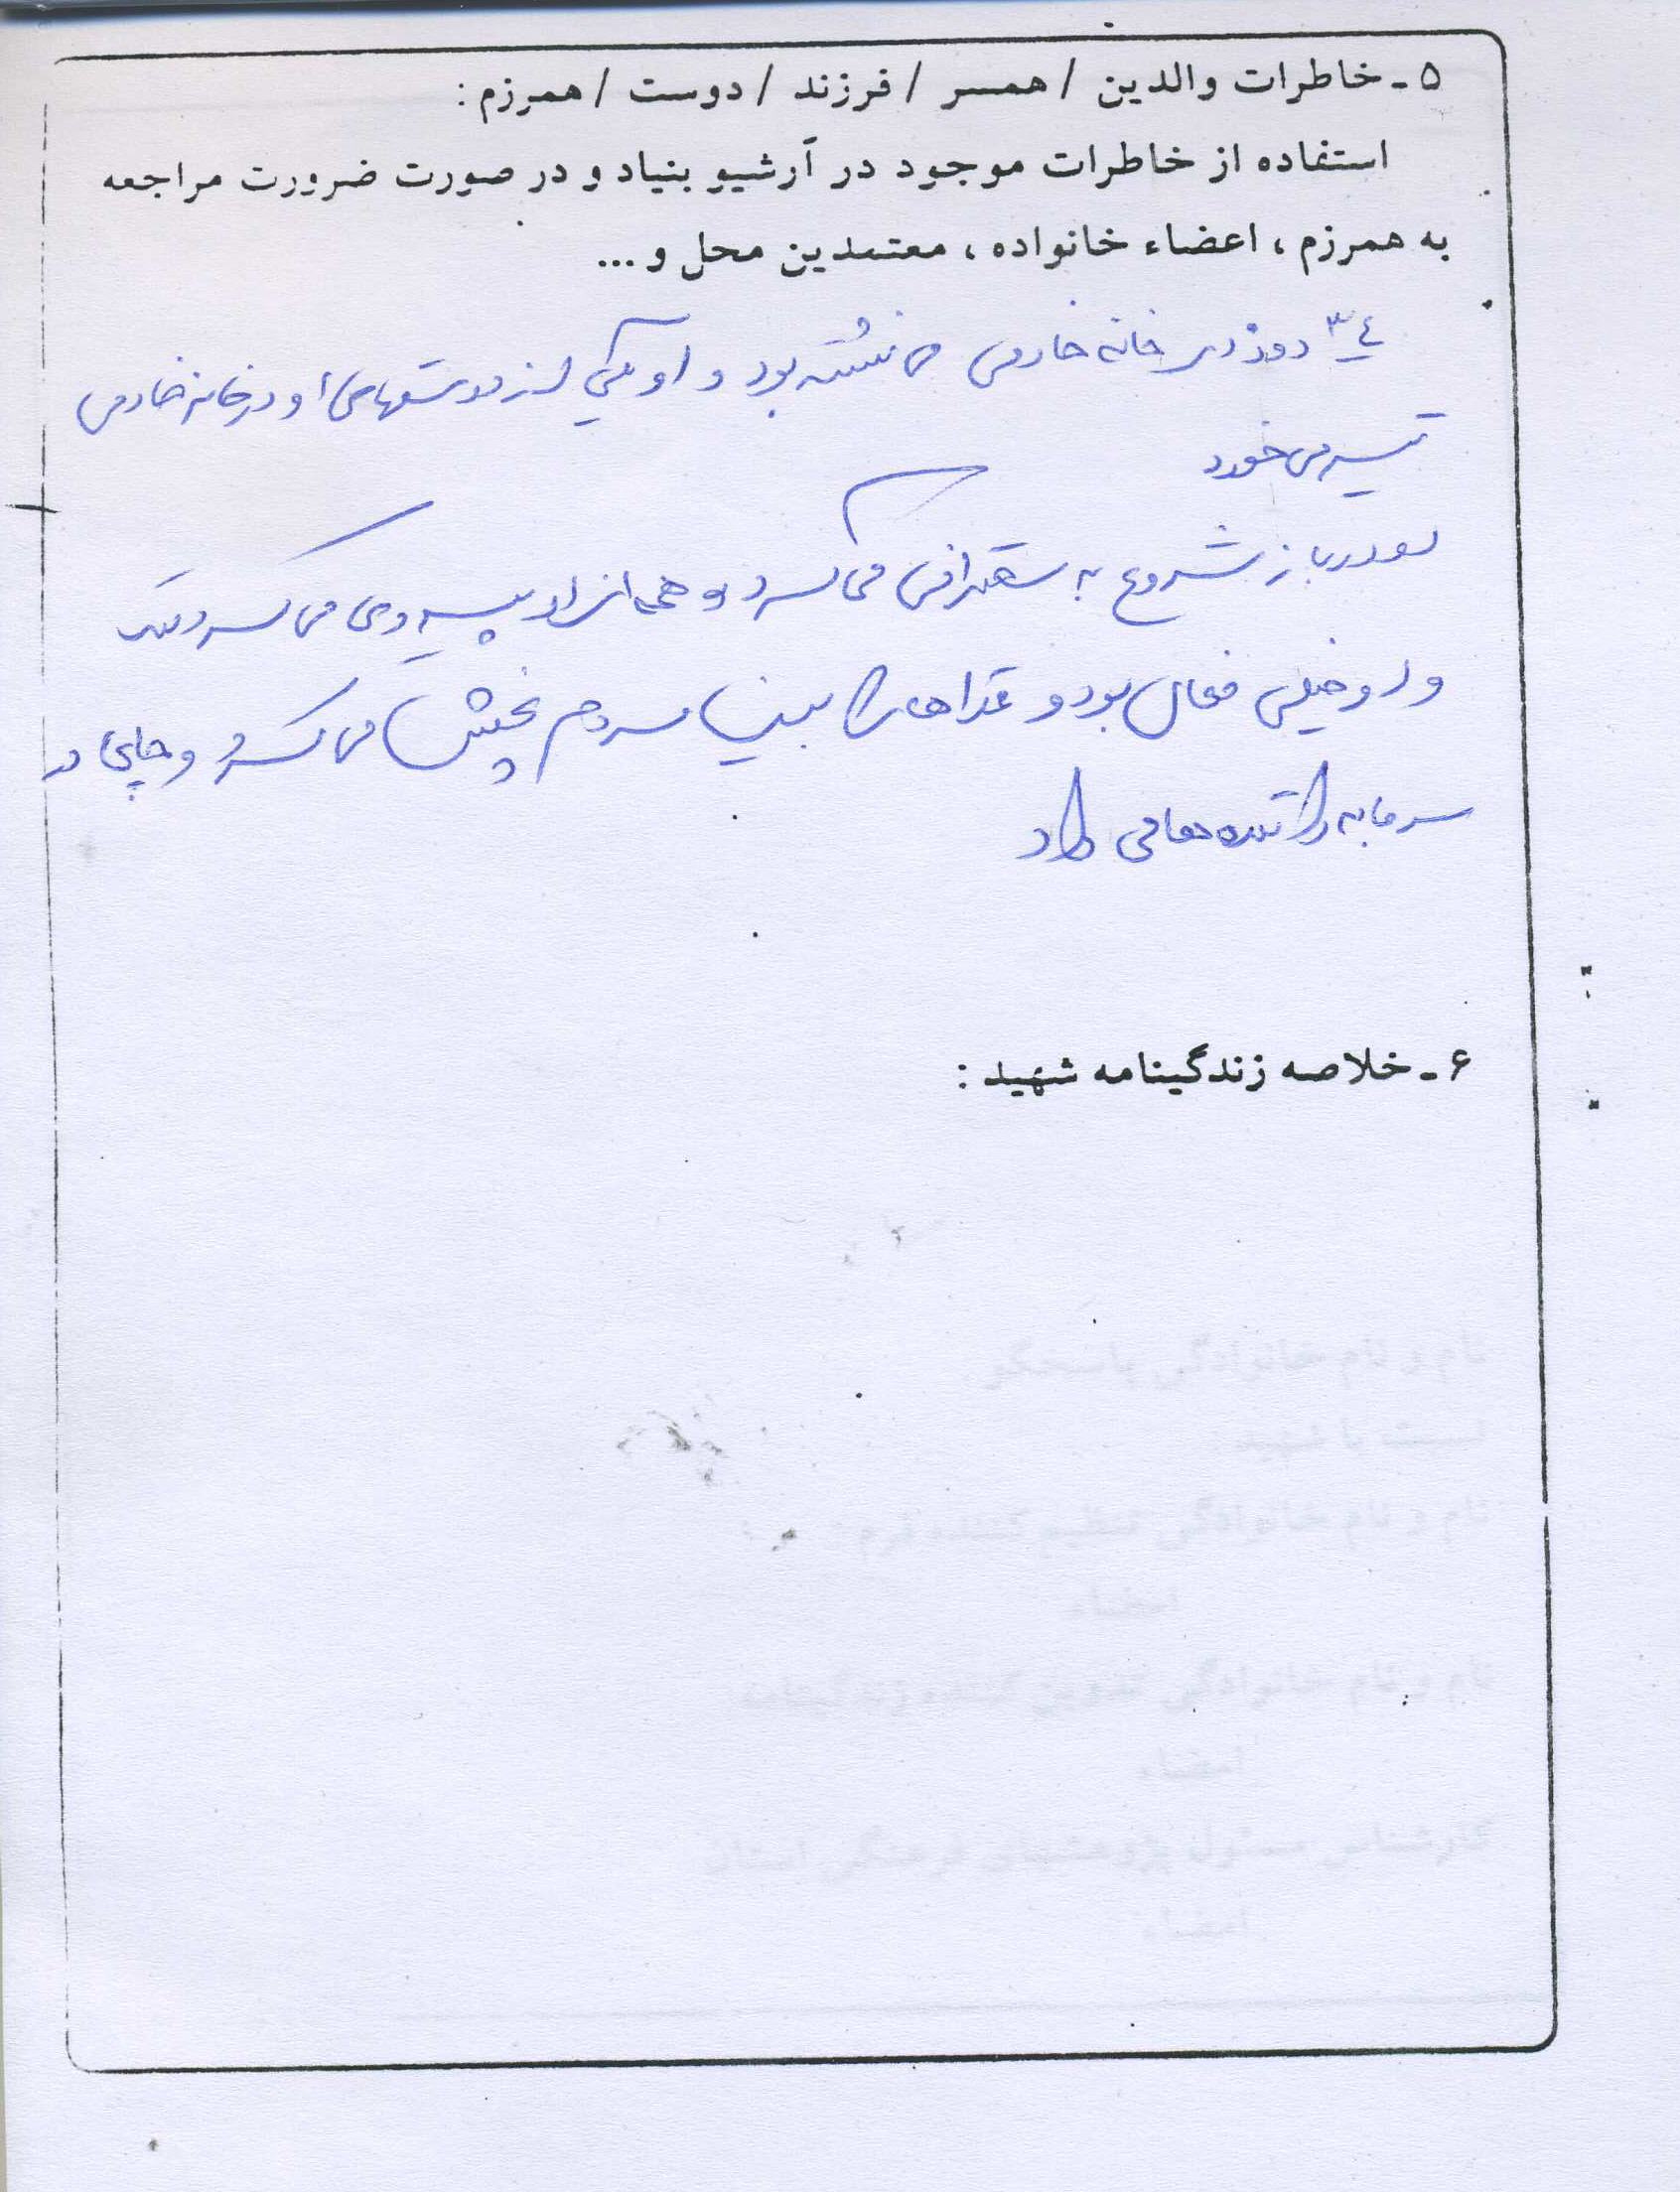 ۵ - خاطرات والدین / همسر / فرزند / دوست / همرزم :
استفاده از خاطرات موجود در آرشیو بنیاد و در صورت ضرورت مراجعه
به همرزم ، اعضاء خانواده ، معتمدین محل و ...
۳-۴ روز در خانه خادمی می نشسته بود و او یکی از دوستهای او در خانه خادمی
تیر می خورد
شروع به سخنرانی می کرد و همه از او پیروی می کردند
و او خیلی فعال بود و غذاها را بین مردم پخش می کرد و چایی در
سرما به راننده ها می داد
۶ - خلاصه زندگینامه شهید :
نام و نام خانوادگی پاسخگو
نسبت با شهید
نام و نام خانوادگی تنظیم کننده فرم :
امضاء
نام و نام خانوادگی تدوین کننده زندگینامه
امضاء
کارشناس مسئول پژوهشهای فرهنگی استان
امضاء